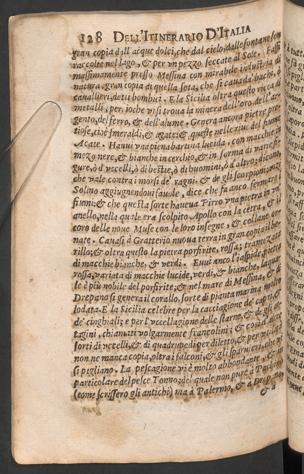 128 DELL'ITINERARIO D'ITALIA
gran copia dall'acque dolci, che dal cielo, dalle fontane sono
raccolte nel lago, & per un pezzo seccate al Sole. Fassi
massimamente presso Messina con mirabile industria di
natura gran copia di quella seta, che si cava da' bachi, o
cavallieri, detti bombici. E la Sicilia oltra questo ricca di
metalli, per ioche vi si trova la miniera dell'oro, dell'ar-
gento, del ferro, & dell'alume. Genera ancora pietre pre-
tiose, cioè smeraldi, & agate; & queste nelle rive del fiume
Acate. Hanno una pietra bertina lucida, con macchie nel
mezo nere, & bianche in cerchio, & in forma di varie fi-
gure, ò d'uccelli, ò di bestie, ò di huomini, ò d'altro; dicono,
che vale contra i morsi de' ragni, & de gli scorpioni,
Solino aggiugnendovi favole, dice, che fa anco fermare i
fiumi; & che questa sorte haveua Pirro una pietra in un
anello, nella quale era scolpito Apollo con la cetra, & il
coro delle nove Muse con le loro insegne, &
nate. Cavasi à Gratterio nuova terra in gran copia il be-
rillo; & oltra quello la pietra porfirite, rossa; tramezzata
di macchie bianche, & verdi. Euui anco l'aspide pietra
rossa, variata di macchie lucide, verdi, & bianche,
le è più nobile del porfirite; & nel mare di Messina, & di
Drepano si genera il corallo, sorte di pianta marina molto
lodata. E la Sicilia celebre per la caccia de' capri, &
de' cinghiali; e per l'uccellagione delle starne, & de gli at-
tagini, chiamati volgarmente francolini; & così d'altre
sorti di uccelli, & di quadrupedi per diletto, & per utile
non ne manca copia, oltra i falconi, & gli sparvieri, che vi
si pigliano. La pescagione vi è molto abbondante, & in
particolare del pesce Tonno; del quale non pure à Pachino
(come scrissero gli antichi) ma à Palermo, & à Drepano